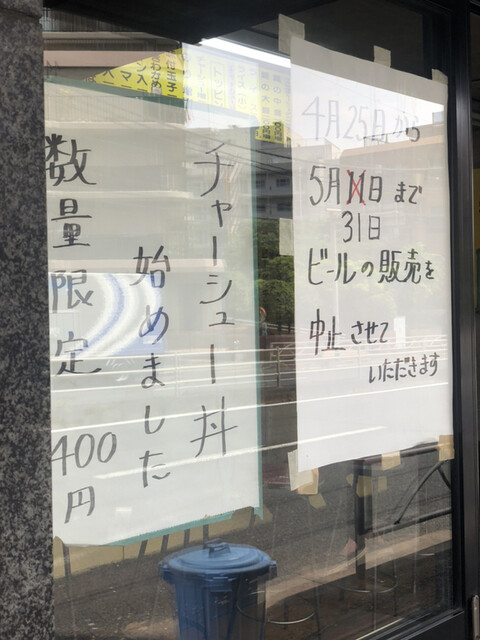 チャーシュー丼
始めました
数量限定
400円
4月25日から
5月11日まで
31日
ビールの販売を
中止させて
いただきます